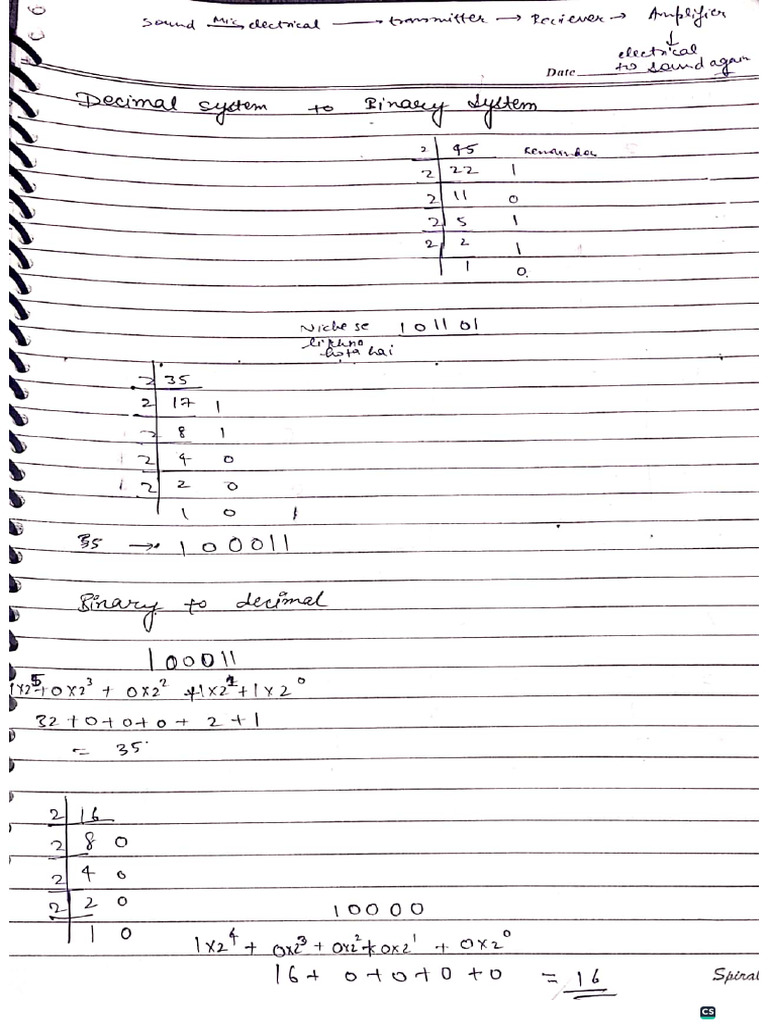 sound Mic electrical → transmitter → Reciever → Amplifier
↓
electrical
to sound again
Date
Decimal system to Binary System
2 | 45 Remainder
2 | 22 1
2 | 11 0
2 | 5 1
2 | 2 1
1 0
Niche se 101101
likhna
hota hai
2 | 35
2 | 17 1
2 | 8 1
2 | 4 0
1 2 | 2 0
1 0 1
35 → 100011
Binary to decimal
100011
1x2^5+0x2^3 + 0x2^2 +1x2^1+1x2^0
32+0+0+0+ 2+1
= 35
2 | 16
2 | 8 0
2 | 4 0
2 | 2 0
10000
1 0
1x2^4 + 0x2^3 + 0x2^2+0x2^1 + 0x2^0
16+ 0+0+0+0 = 16
Spiral
CS